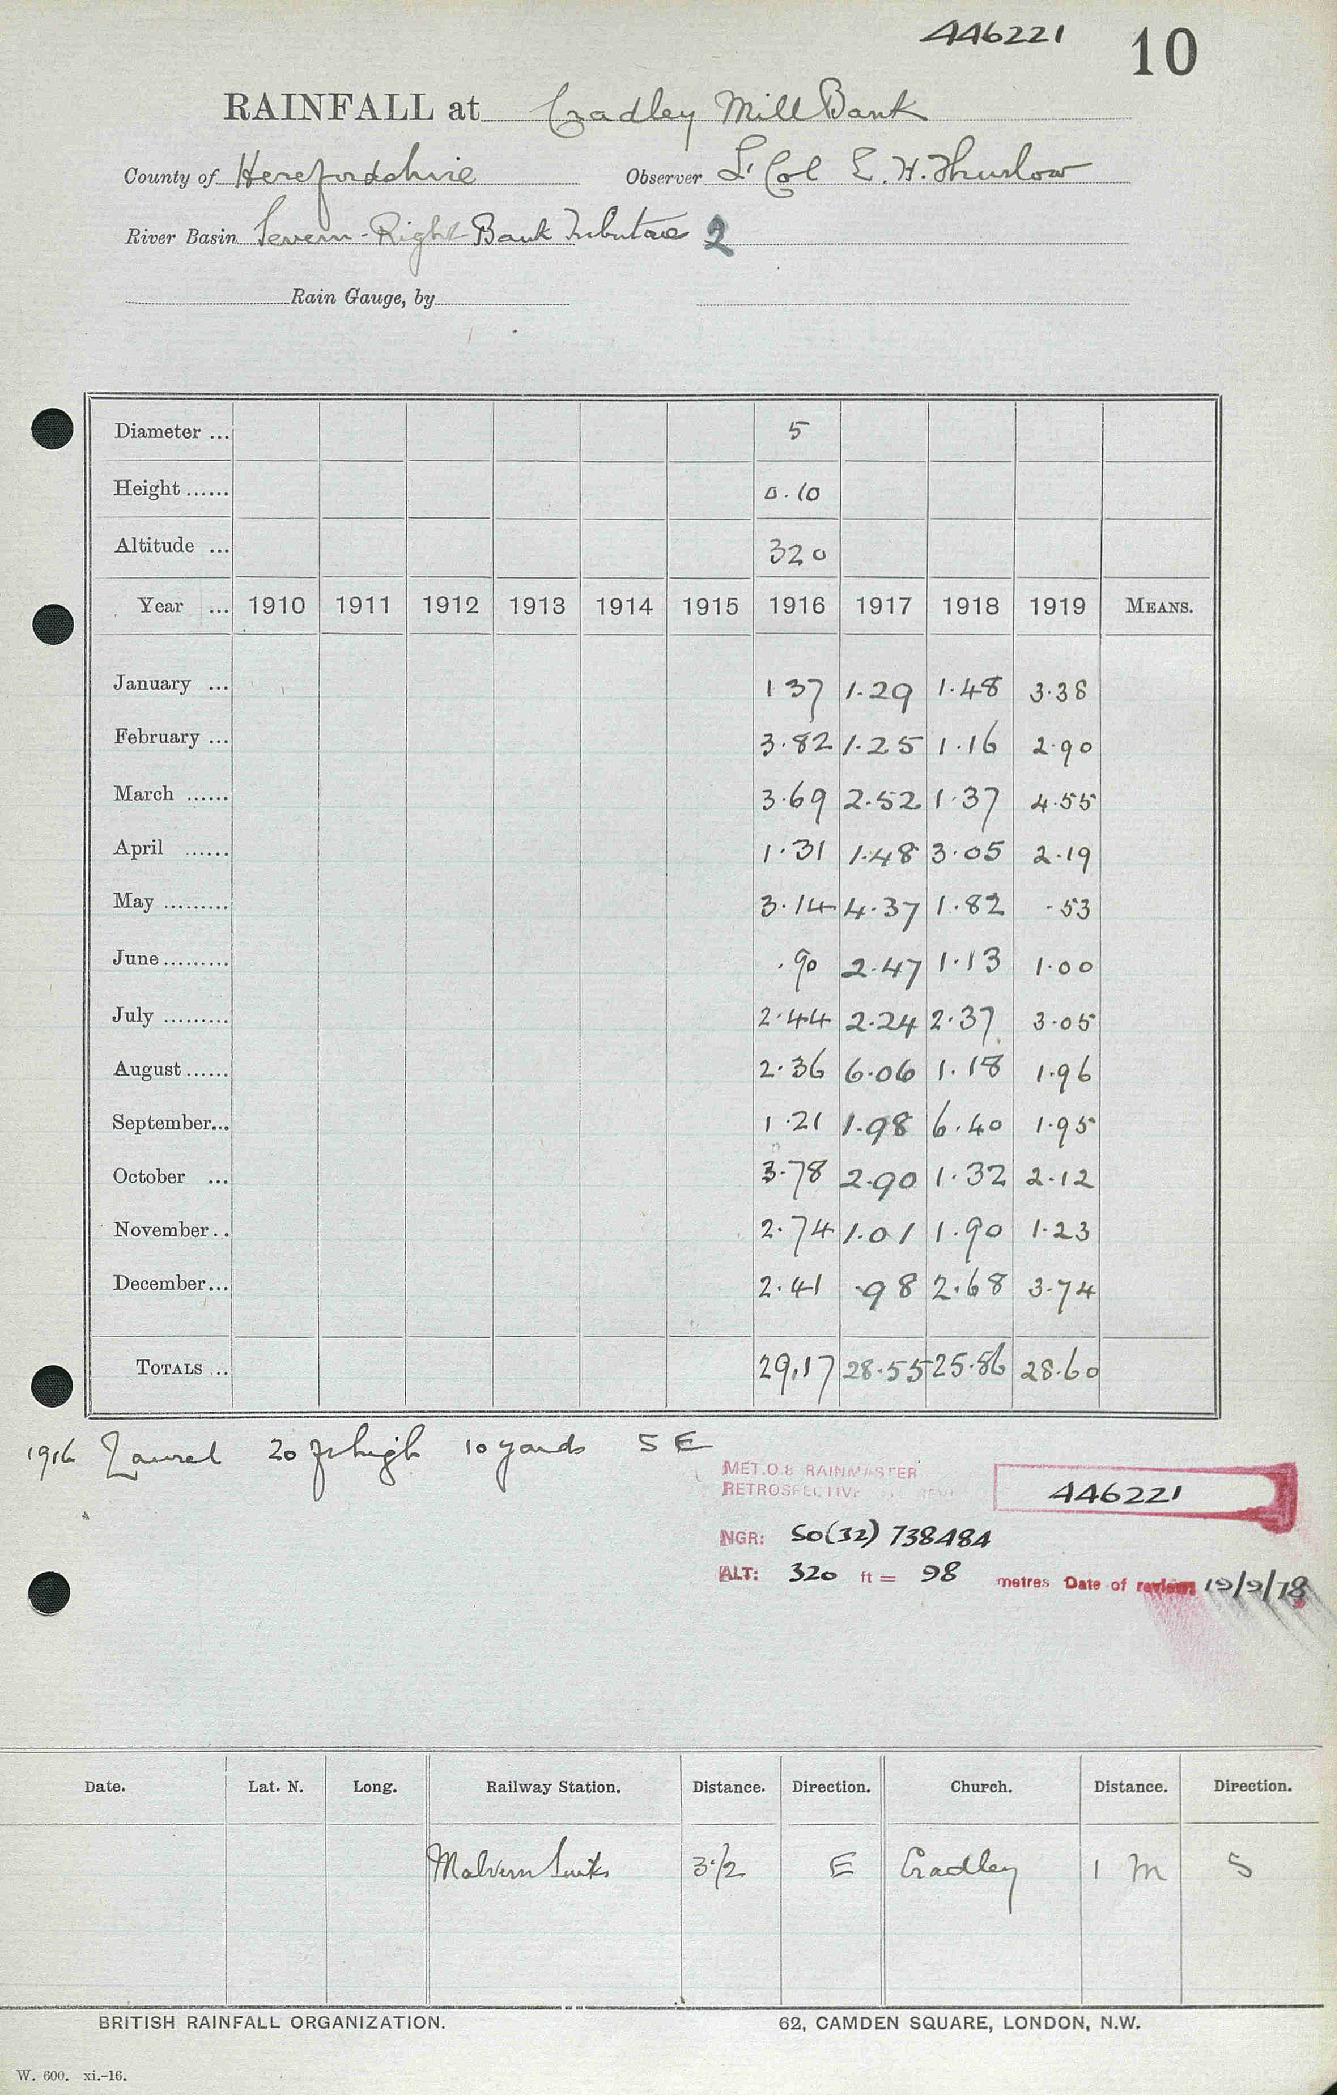 446221 10
RAINFALL at Cradley Mill Bank
County of Herefordshire Observer Lt Col E. H. Thurlow
River Basin Severn - Right Bank Tributaries 2
Rain Gauge, by
Diameter ... 5
Height ...... 0.10
Altitude ... 320
Year ... 1910 1911 1912 1913 1914 1915 1916 1917 1918 1919 MEANS.
January ... 1 37 1.29 1.48 3.38
February ... 3.82 1.25 1.16 2.90
March ...... 3.69 2.52 1.37 4.55
April ...... 1.31 1.48 3.05 2.19
May ......... 3.14 4.37 1.82 .53
June ......... .90 2.47 1.13 1.00
July ......... 2.44 2.24 2.37 3.05
August ...... 2.36 6.06 1.18 1.96
September... 1.21 1.98 6.40 1.95
October ... 3.78 2.90 1.32 2.12
November .. 2.74 1.01 1.90 1.23
December... 2.41 .98 2.68 3.74
TOTALS .. 29.17 28.55 25.86 28.60
1916 Laurel 20 ft high 10 yards SE
MET.O.8 RAINMASTER
RETROSPECTIVE
446221
NGR: SO(32) 738484
ALT: 320 ft = 98 metres Date of review: 19/9/78
Date. Lat. N. Long. Railway Station. Distance. Direction. Church. Distance. Direction.
Malvern Link 3 1/2 E Cradley 1 m S
BRITISH RAINFALL ORGANIZATION. 62, CAMDEN SQUARE, LONDON, N.W.
W. 600. xi.-16.